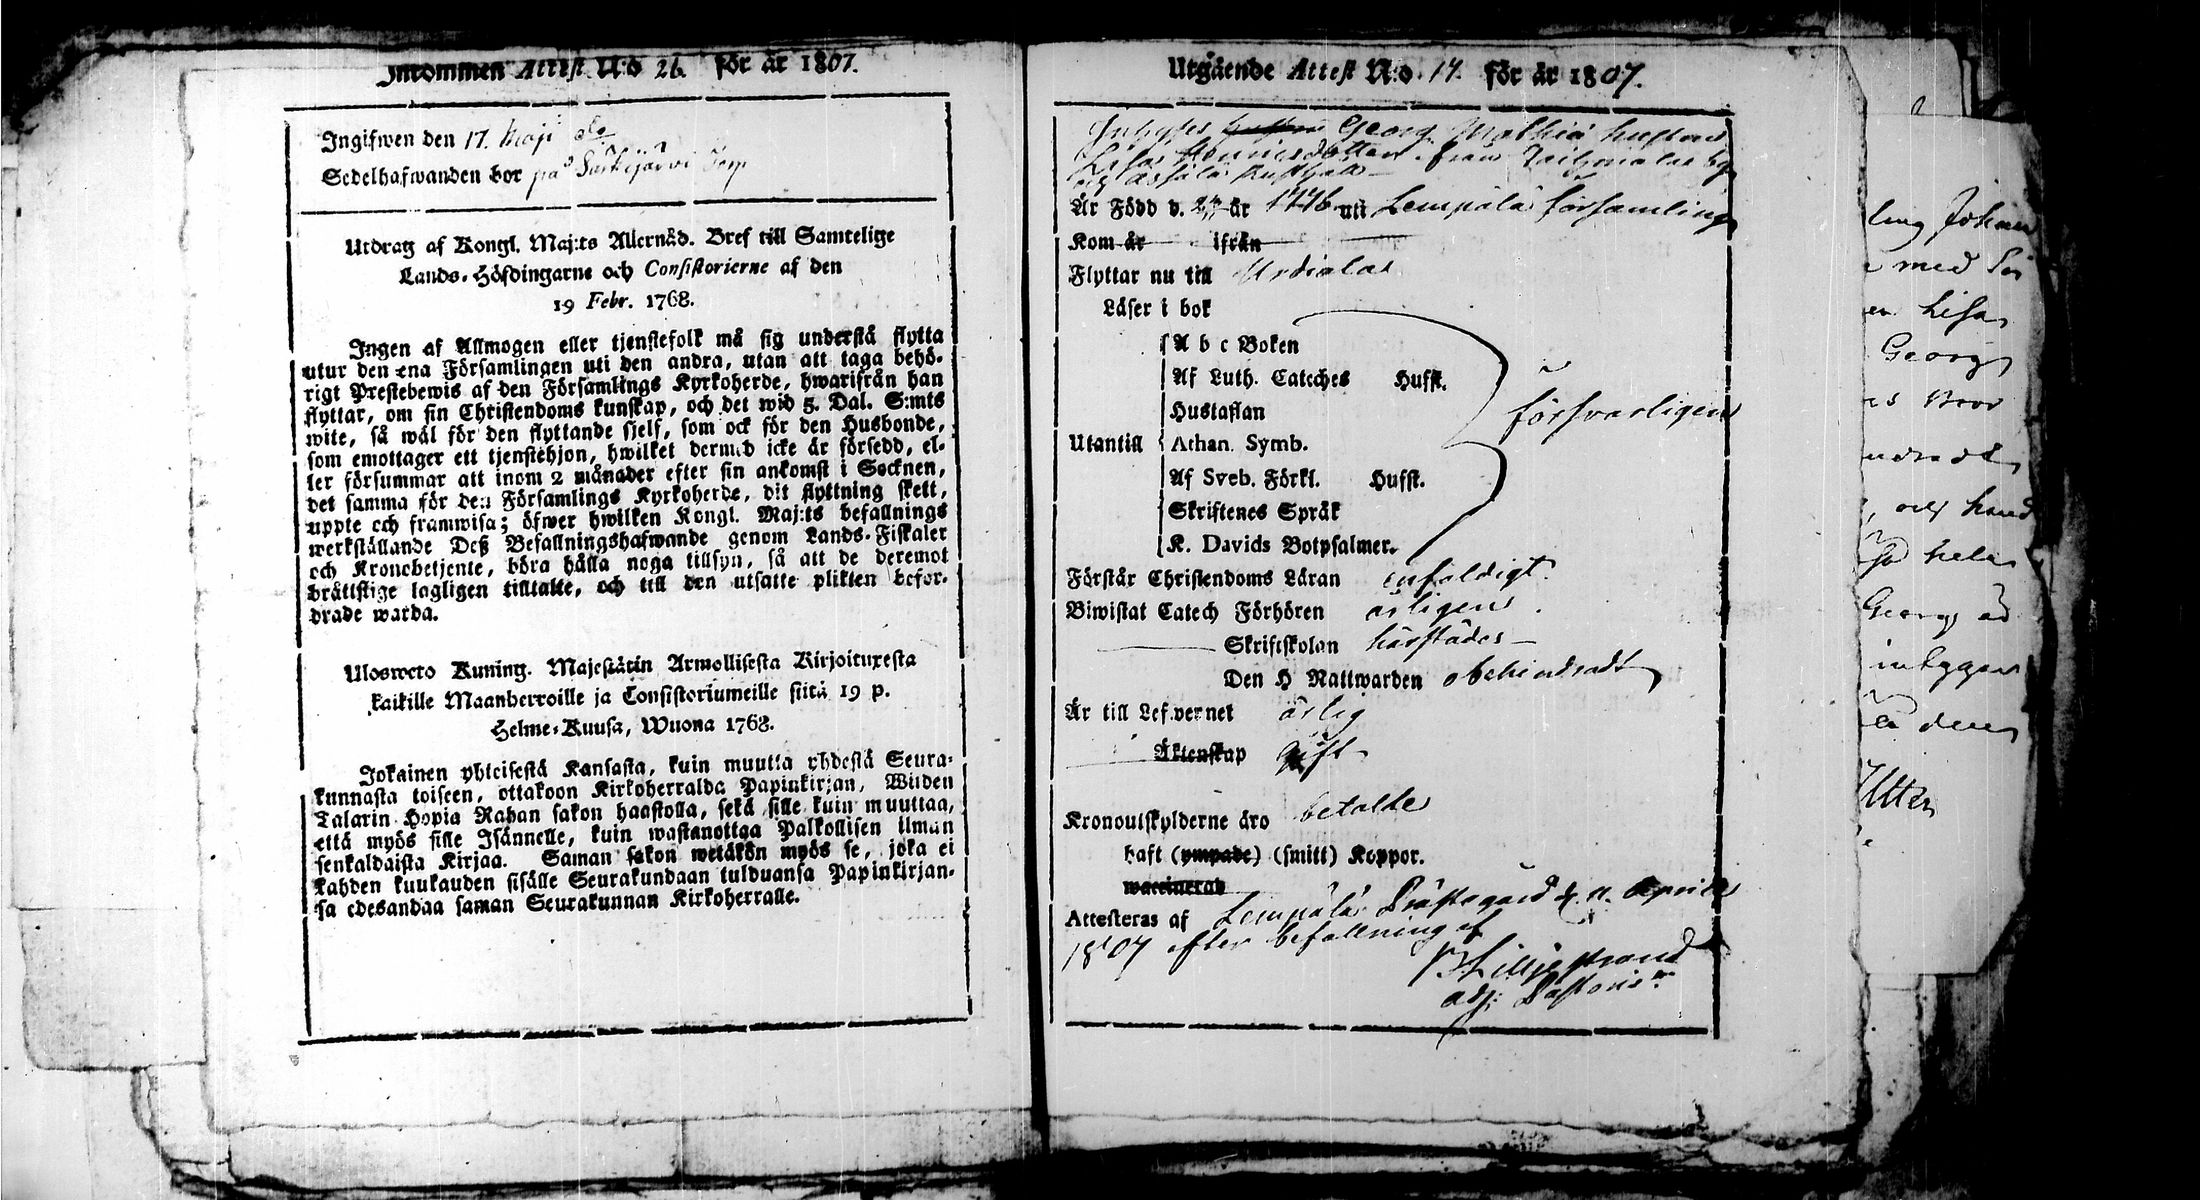 Inkommen Attest N:o 26. för år 1807.
Ingifwen den 17. Maji
Sedelhafwanden bor på Särkijärvi Torp
Utdrag af Kongl. Maj:ts Allernåd. Bref till Samtelige
Lands-Höfdingarne och Consistorierne af den
19 Febr. 1768.
Ingen af Allmogen eller tjenstefolk må sig understå flytta
utur den ena Församlingen uti den andra, utan att taga behö-
rigt Prestebewis af den Församlings Kyrkoherde, hwarifrån han
flyttar, om sin Christendoms kunskap, och det wid 5. Dal. S:mts
wite, så wäl för den flyttande sjelf, som ock för den Husbonde,
som emottager ett tjenstehjon, hwilket dermed icke är försedd, el-
ler försummar att inom 2 månader efter sin ankomst i Socknen,
det samma för den Församlings Kyrkoherde, dit flyttning skett,
uppte och framwisa; öfwer hwilken Kongl. Maj:ts befallnings
werkställande Deß Befallningshafwande genom Lands-Fiskaler
och Kronobetjente, böra hålla noga tillsyn, så att de deremot
bråttslige lagligen tilltalte, och till den utsatte plikten befor-
drade warda.
Uloswето Kuning. Majestätin Armollisesta Kirjoituxesta
kaikille Maanherroille ja Consistoriumeille siitä 19 p.
Helme-Kuusa, Wuona 1768.
Jokainen yhteisestä Kansasta, kuin muutta yhdestä Seura-
kunnasta toiseen, ottakoon Kirkoherralda Papinkirjan, Wiiden
Talarin Hopia Rahan sakon haastolla, sekä sille kuin muuttaa,
että myös sille Isännelle, kuin wastanottaa Palkollisen ilman
senkaldaista Kirjaa. Saman sakon wetäkön myös se, joka ei
kahden kuukauden sisälle Seurakundaan tulduansa Papinkirjan-
sa edesandaa saman Seurakunnan Kirkoherralle.
Utgående Attest N:o. 14. för år 1807.
Inhyses Georg Mathias hustru
Henricsdotter från
Är Född d. 24/11 år 1776 uti Lempälä församling
Kom år ifrån
Flyttar nu till Urdiala
Läser i bok
A b c Boken
Af Luth. Cateches Hufst.
Hustaflan
försvarligen
Utantill Athan. Symb.
Af Sveb. Förkl. Hufst.
Skriftenes Språk
K. Davids Botpsalmer.
Förstår Christendoms Läran enfaldigt.
Biwistat Catech Förhören årligen.
Skriftskolan härstädes
Den H Nattwarden obehindradt
Är till Lefwernet ärlig
Äktenskap gift
Kronoutskylderne äro betalde
haft (ympade) (smitt) Koppor.
waccinerad
Attesteras af Lempälä Prästegård d. 11. Aprill
1807 efter befallning af
Lilljestrand
adj: Pastoris
Johan
med
Lisa
Georg
och
hela
Georg
den